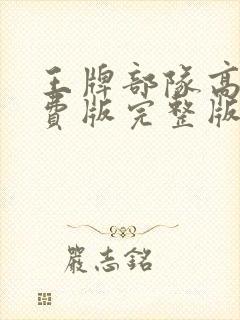 王牌部隊高
費版完整版
嚴志銘